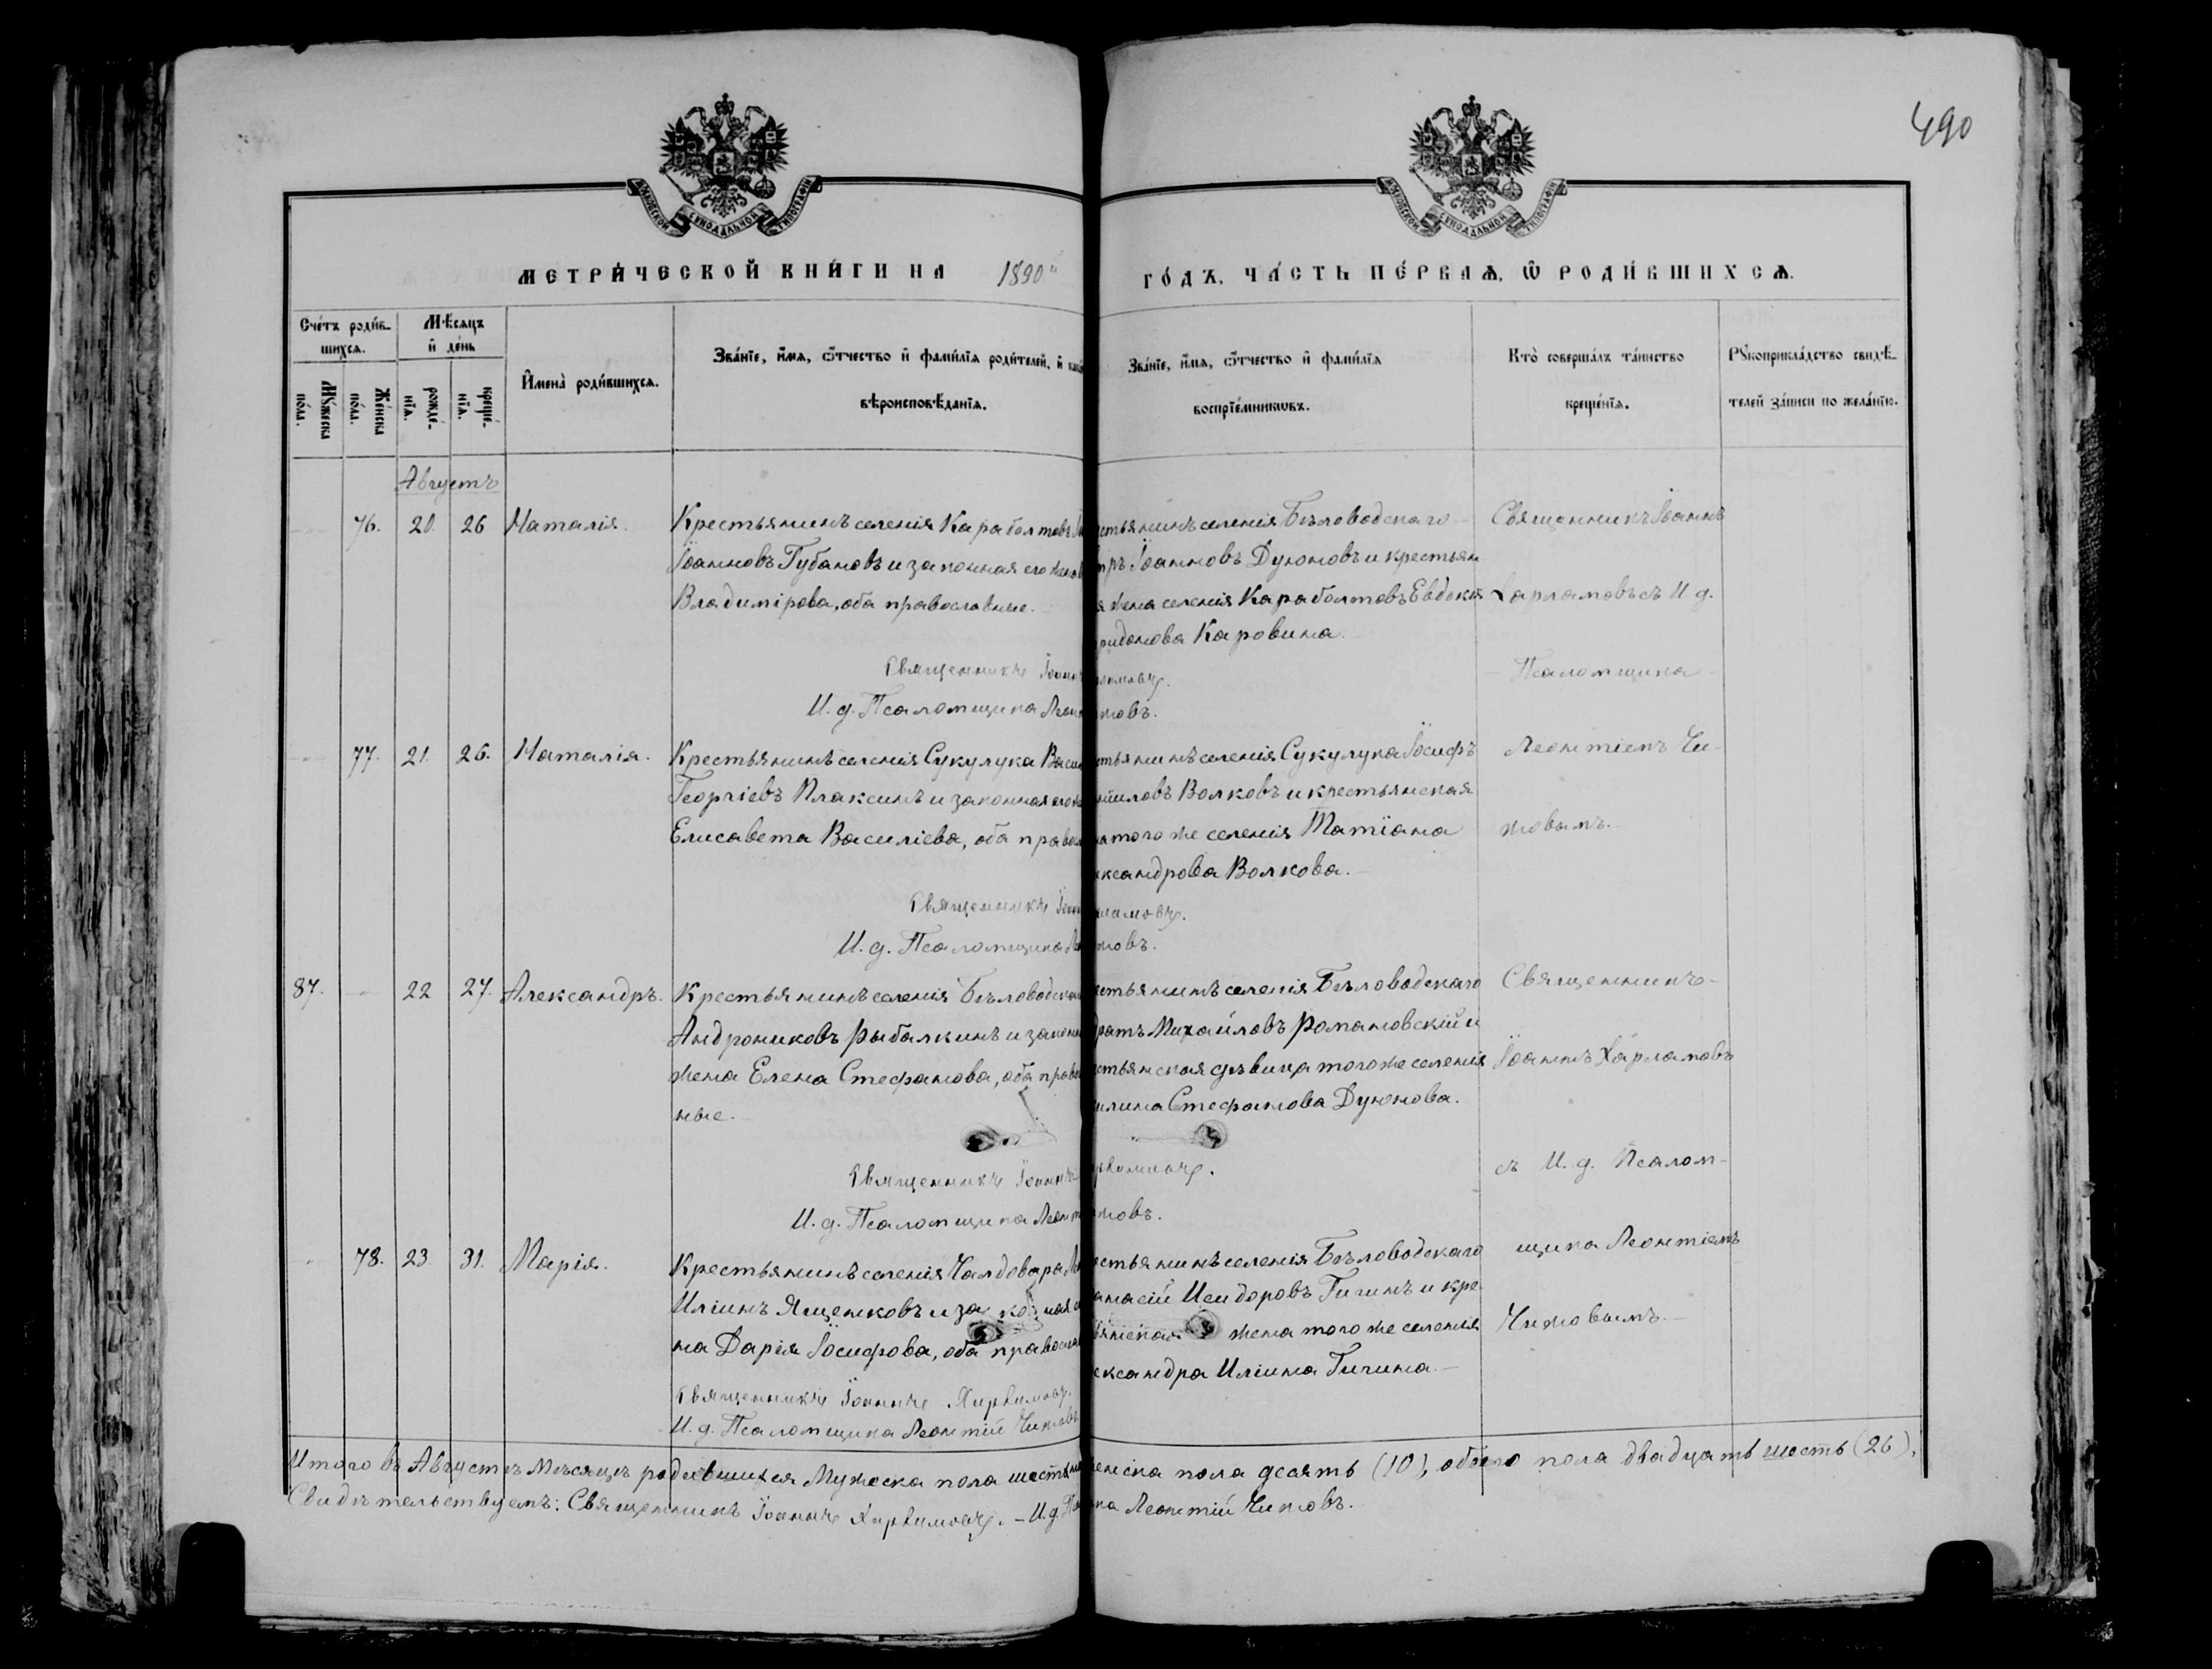 490
МОСКОВСКОЙ СѴНОДАЛЬНОЙ ТИПОГРАФІИ
МОСКОВСКОЙ СѴНОДАЛЬНОЙ ТИПОГРАФІИ
МЕТРИ́ЧЕСКОЙ КНИ́ГИ НА 1890й
ГО́ДЪ, ЧА́СТЬ ПЕ́РВАѦ, Ѡ҆ РОДИ́ВШИХСѦ.
Сче́тъ роди́вшихсѧ.
Мꙋ́жеска по́ла.
Же́нска по́ла.
Мѣ́сѧцъ и҆ де́нь
рожде́нїѧ.
креще́нїѧ.
И҆мена̀ роди́вшихсѧ.
Зва́нїе, и҆́мѧ, ѻ҆́тчество и҆ фами́лїѧ роди́телей, и҆
вѣроисповѣ́данїѧ.
Зва́нїе, и҆́мѧ, ѻ҆́тчество и҆ фами́лїѧ
воспрїе́мникѡвъ.
Кто̀ соверша́лъ та́инство
креще́нїѧ.
Рꙋкоприкла́дство свидѣ́-
телей за́писи по жела́нїю.
Августъ
76. 20. 26 Наталія.
Крестьянинъ селенія Караболтовъ
Іоанновъ Губановъ и законная его жена
Владимірова, оба православные.
Священникъ Іоаннъ
И. д. Псаломщика Леон
стьянинъ селенія Бѣловодскаго
тръ Іоанновъ Дуюновъ и крестьян
я жена селенія Караболтовъ Евдокія
ридонова Каровина.
ламовъ.
новъ.
Священникъ Іоаннъ
Харламовъ съ И. д.
Псаломщика
77. 21. 26. Наталія.
Крестьянинъ селенія Сукулука Васи
Георгіевъ Плаксинъ и законная его же
Елисавета Василіева, оба правос
Священникъ Іоан
И. д. Псаломщика Ле
стьянинъ селенія Сукулука Іосифъ
ииловъ Волковъ и крестьянская
на того же селенія Татіана
ександрова Волкова.
ламовъ.
новъ.
Леонтіемъ Чи-
жовымъ.
87. 22 27. Александръ.
Крестьянинъ селенія Бѣловодскаго
Андрониковъ Рыбалкинъ и законн
жена Елена Стефанова, оба право
ные.
Священникъ Іоаннъ
И. д. Псаломщика Леонт
стьянинъ селенія Бѣловодскаго
дратъ Михайловъ Романовскій и
стьянская дѣвица того же селенія
илина Стефанова Дуюнова.
рламовъ.
новъ.
Священникъ
Іоаннъ Харламовъ
съ И. д. Псалом-
щика Леонтіемъ
78. 23. 31. Марія.
Крестьянинъ селенія Чалдовара
Иліинъ Ященковъ и законная
на Дарія Іосифова, оба правосла
Священникъ Іоаннъ Харламовъ.
И. д. Псаломщика Леонтій
стьянинъ селенія Бѣловодскаго
анасій Исидоровъ Гичинъ и кре
тьянская жена того же селенія
ександра Иліина Гичина.
Итого въ Августѣ мѣсяцѣ родившихся Мужеска пола шест
женска пола десять (10), обоего пола двадцать шесть (26).
Свидѣтельствуемъ: Священникъ Іоаннъ Харламовъ. – И. д. Пс
ка Леонтій